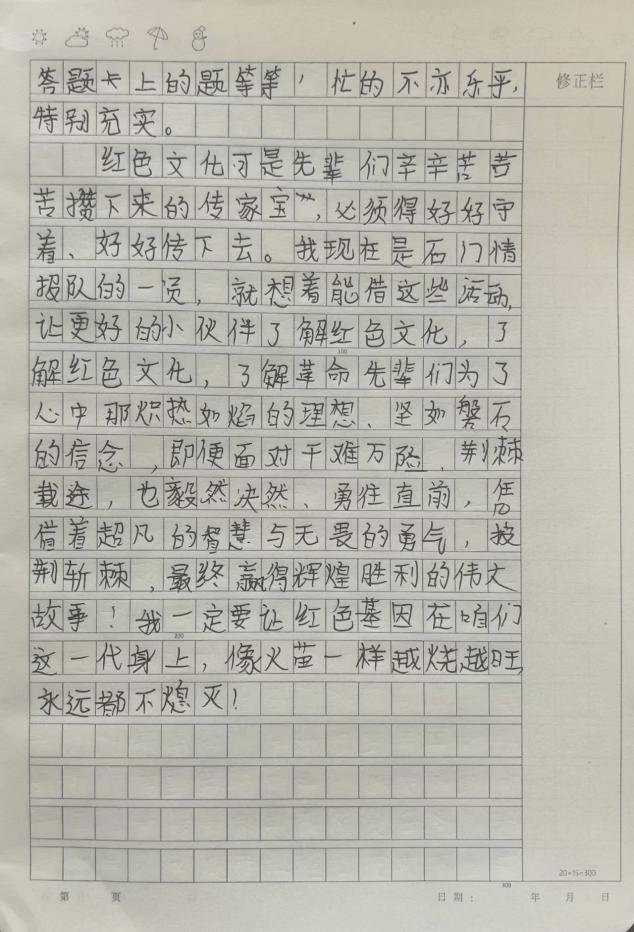 修正栏
答题卡上的题等等，忙的不亦乐乎，
特别充实。
红色文化可是先辈们辛辛苦苦
苦攒下来的传家宝，必须得好好守
着、好好传下去。我现在是石门情
报队的一员，就想着能借这些活动，
让更好的小伙伴了解红色文化，了
解红色文化，了解革命先辈们为了
心中那炽热如焰的理想、坚如磐石
的信念，即便面对千难万险、荆棘
载途，也毅然决然、勇往直前，凭
借着超凡的智慧与无畏的勇气，披
荆斩棘，最终赢得辉煌胜利的伟大
故事！我一定要让红色基因在咱们
这一代身上，像火苗一样越烧越旺，
永远都不熄灭！
100
200
300
20×15=300
第 页 日期： 年 月 日